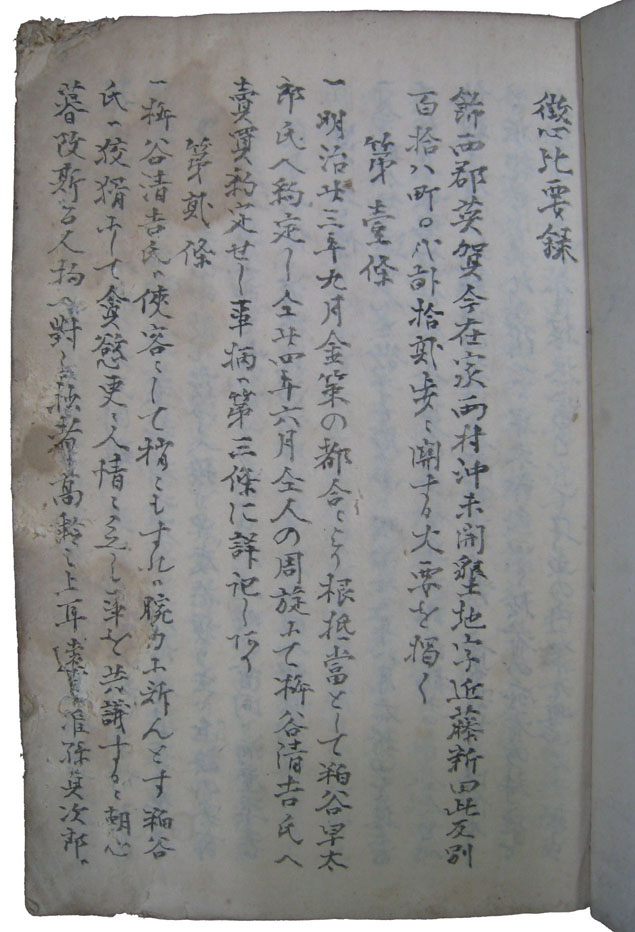 徴比要録
飾西郡英賀今在家両村沖未開墾地字近藤新田此反別
百拾八町〇八畝拾弐歩ニ関する大要を掲く
第壹條
一明治廿三年九月金策の都合により根抵當として粕谷早太
郎氏へ約定し仝廿四年六月仝人の周旋ニて桝谷清吉氏へ
賣買約定せし事柄ハ第三條に詳記しあり
第弐條
一桝谷清吉氏ハ侠客ニして稍ともすれハ腕力ニ訴んとす粕谷
氏ハ狡猾ニして貪慾更ニ人情ニ乏し事を共議するニ朝心
暮改斯る人物へ對し拙者高齢之上耳遠 孫眞次郎ハ